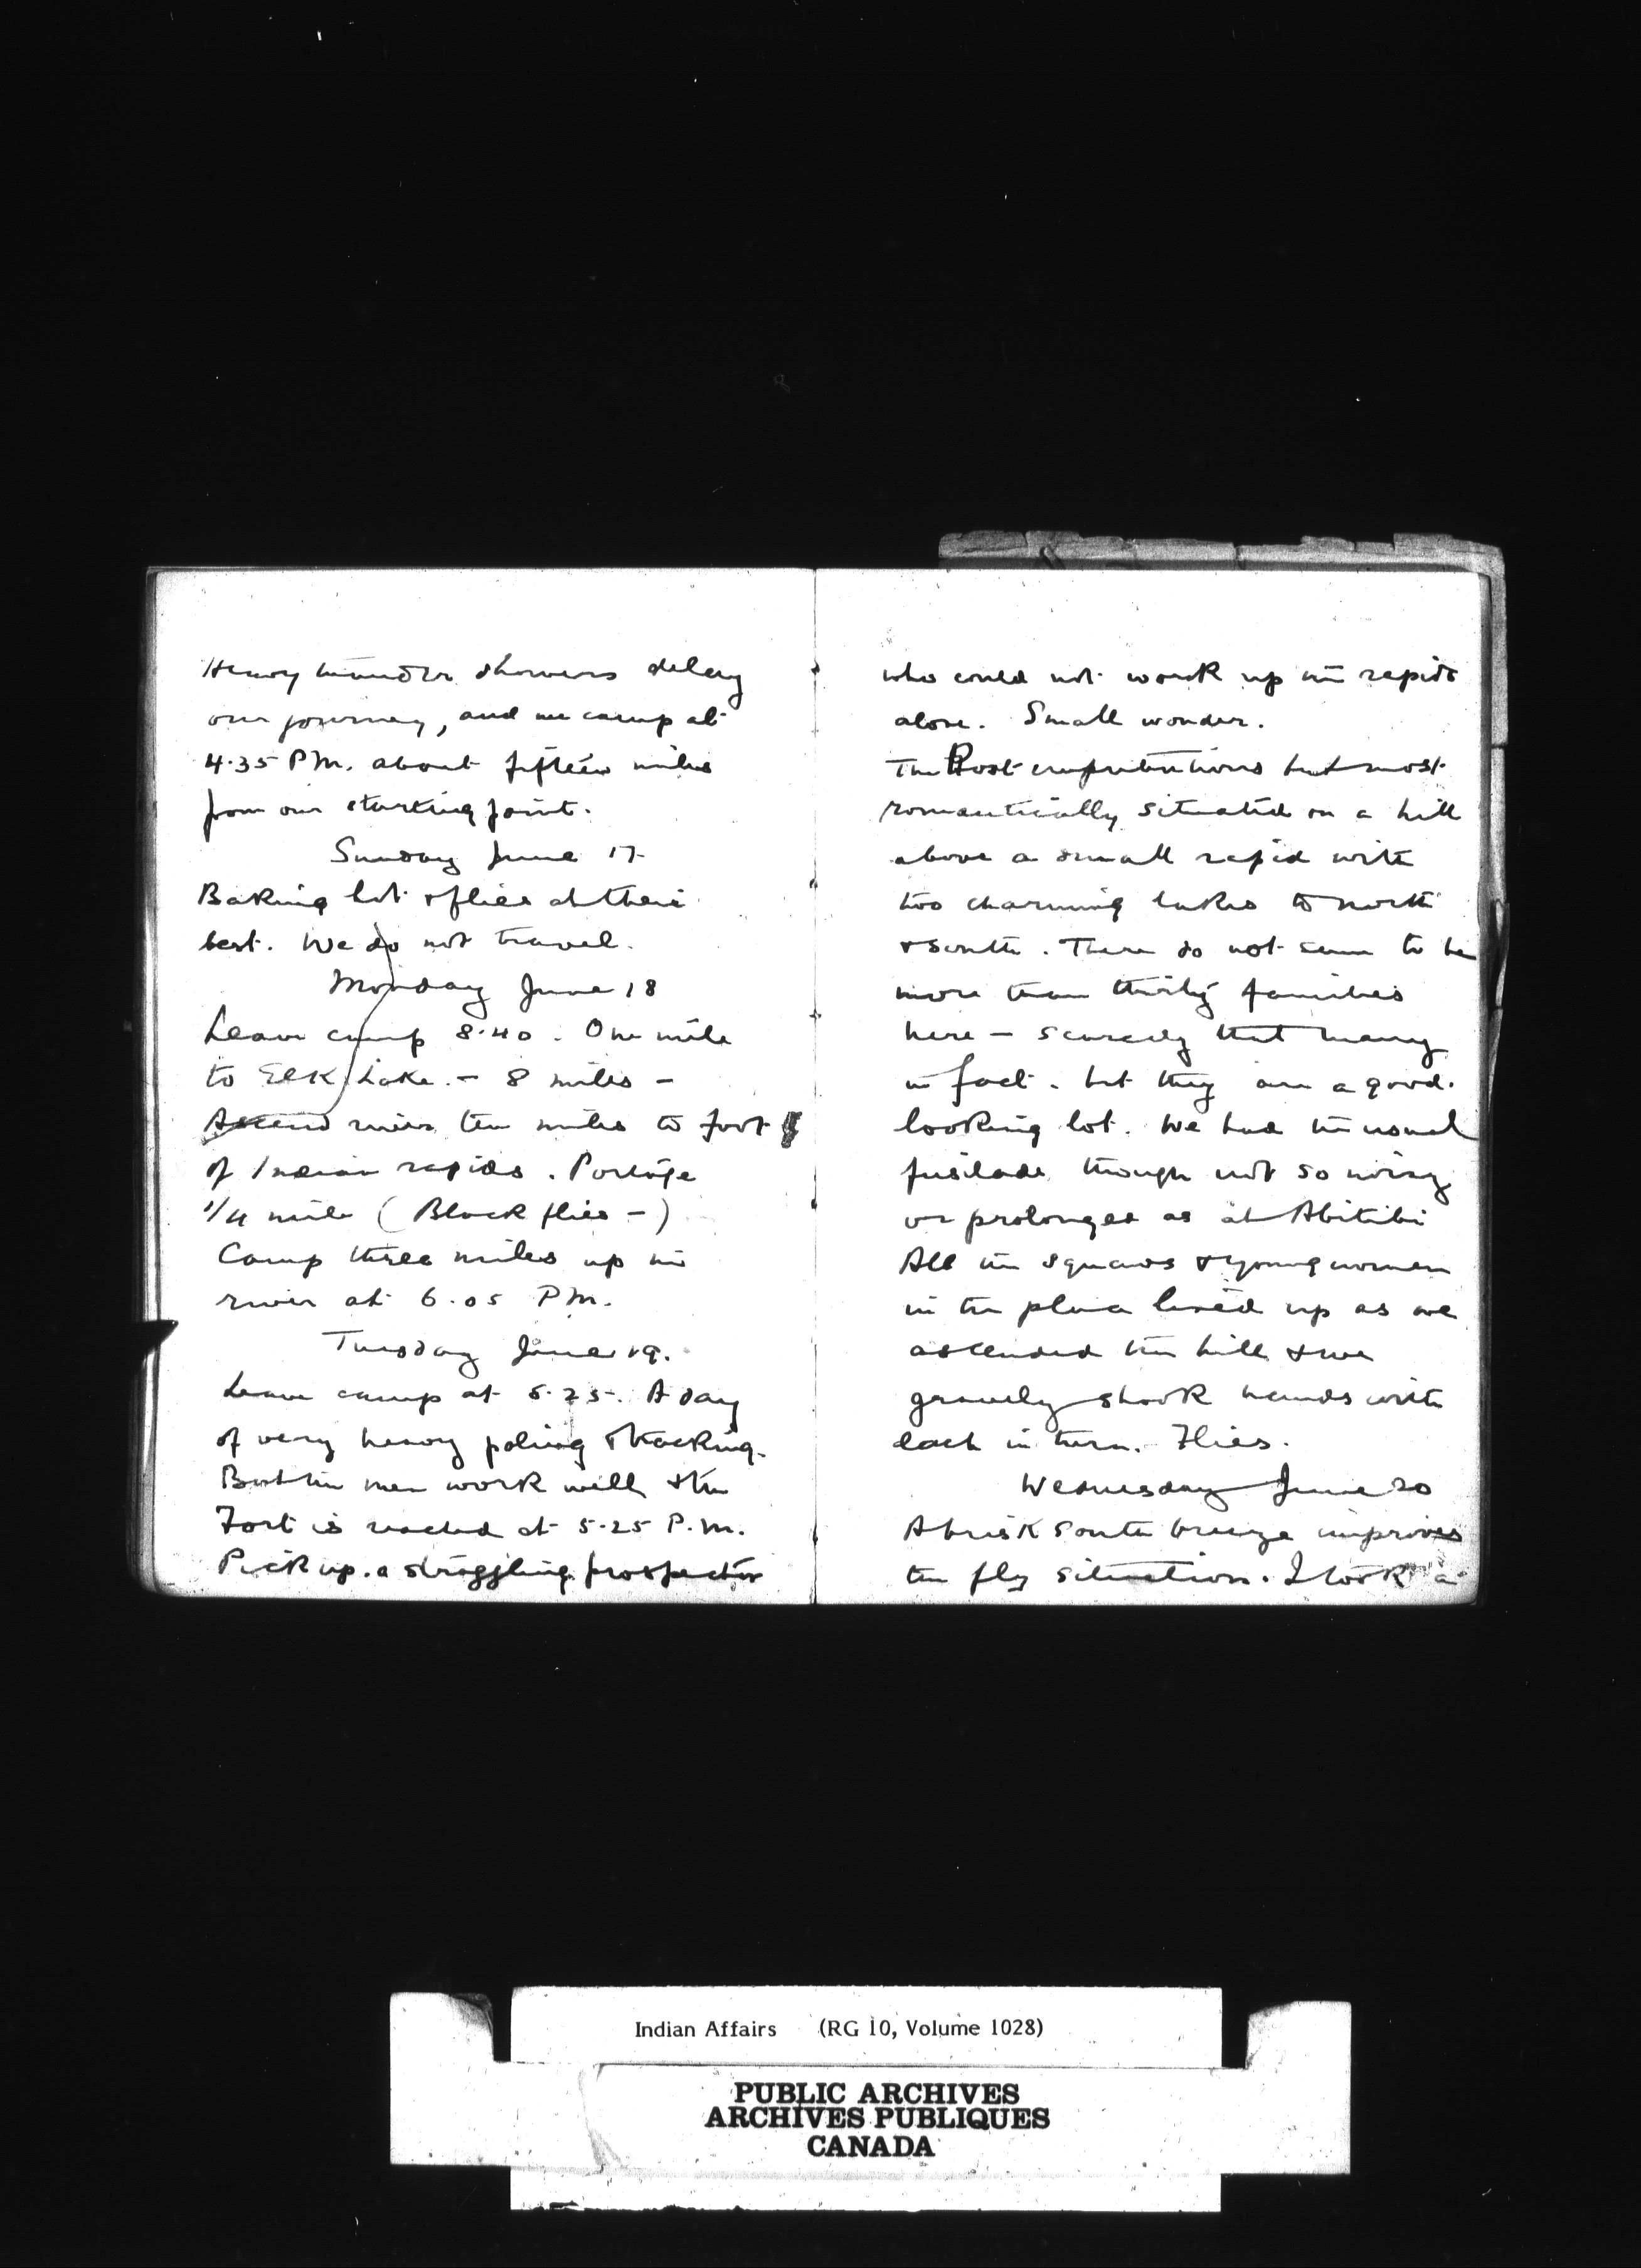 Heavy thunder showers delay
our journey, and we camp at
4.35 PM. about fifteen miles
from our starting point.
Sunday June 17
Baking hot & flies at their
best. We do not travel.
Monday June 18
Leave camp 8.40. One mile
to Elk Lake. - 8 miles -
Ascend river ten miles to foot
of Indian rapids. Portage
1/4 mile (Black flies -)
Camp three miles up the
river at 6.05 PM.
Tuesday June 19.
Leave camp at 5.25. A day
of very heavy poling & tracking.
But the men work well & the
Fort is reached at 5.25 P.M.
Pick up a straggling prospector
who could not work up the rapids
alone. Small wonder.
The Post unpretentious but most
romantically situated on a hill
above a small rapid with
two charming lakes to north
& south. There do not seem to be
more than thirty families
here - scarcely that many
in fact. but they are a good
looking lot. We had the usual
fusilade though not so noisy
or prolonged as at Abitibi
All the squaws & young women
in the place lined up as we
ascended the hill & we
gravely shook hands with
each in turn. Flies.
Wednesday June 20
A brisk south breeze improves
the fly situation. I took a
Indian Affairs (RG 10, Volume 1028)
PUBLIC ARCHIVES
ARCHIVES PUBLIQUES
CANADA